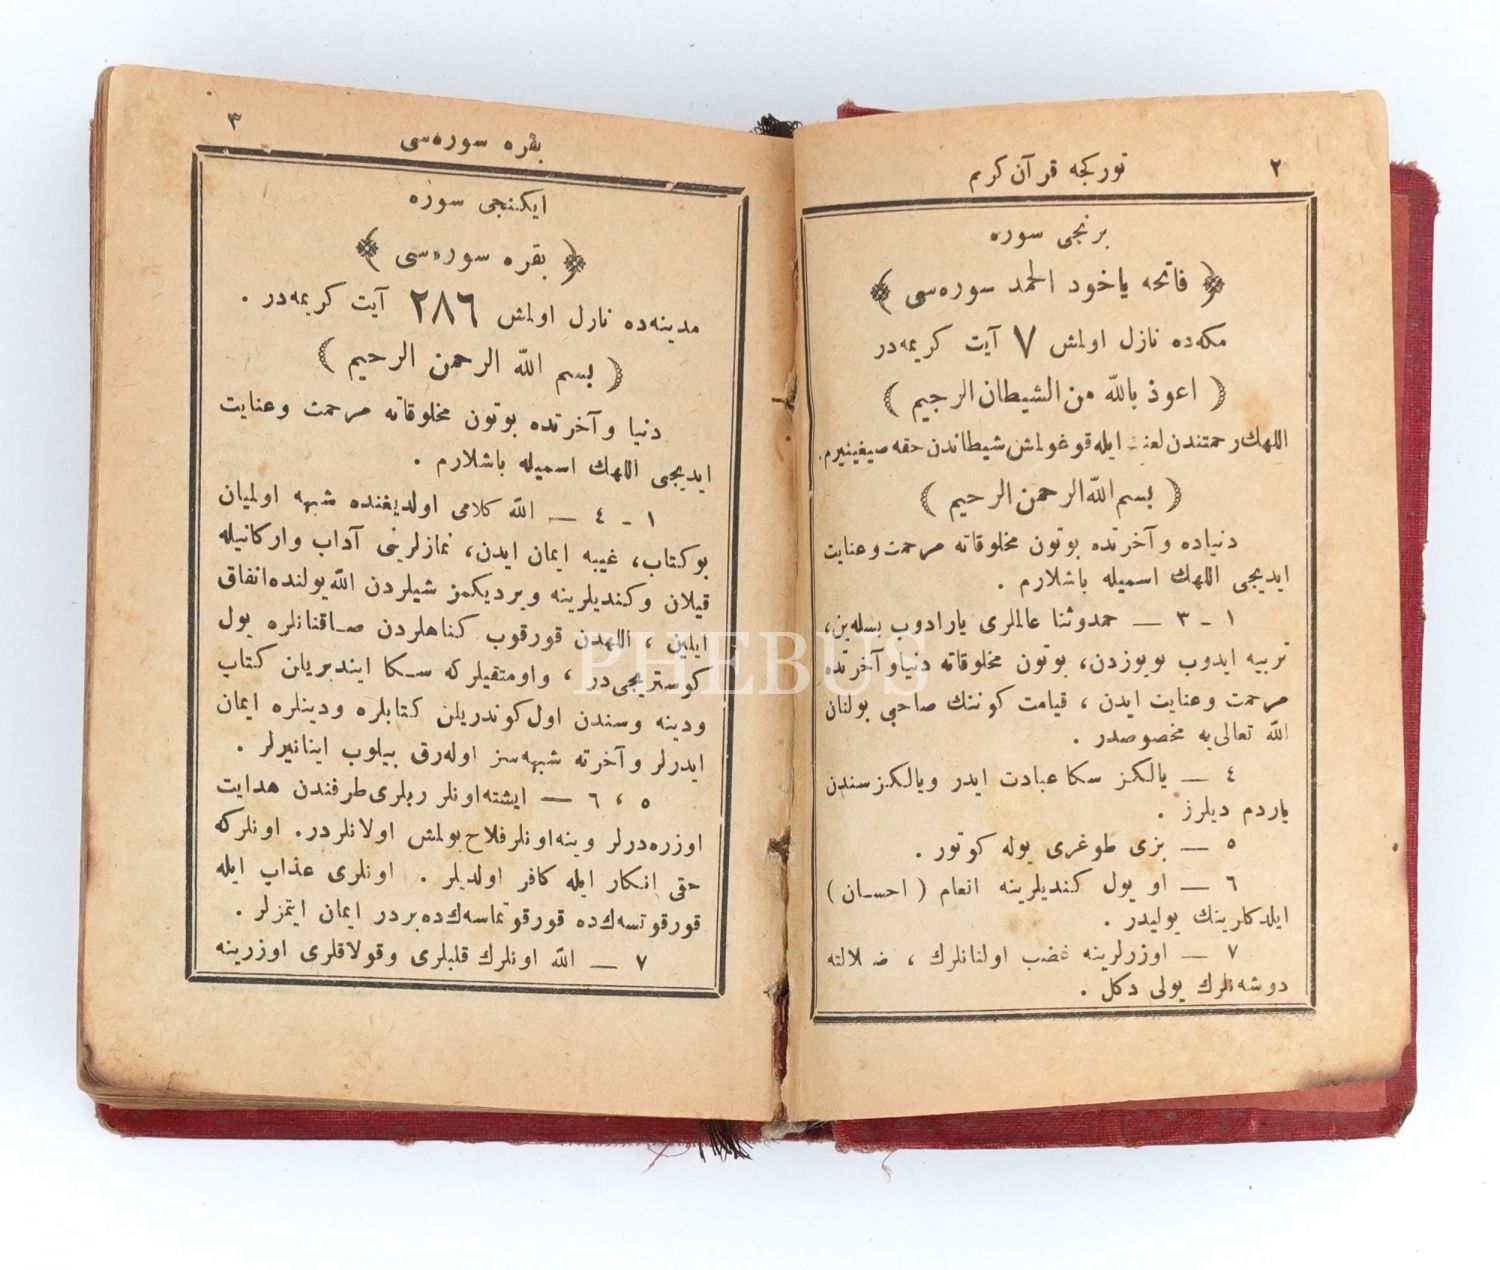 ٢
تورکجه قرآن کریم
برنجی سوره
﴿ فاتحه یاخود الحمد سوره‌سی ﴾
مکه‌ده نازل اولمش ٧ آیت کریمه‌در
﴿ اعوذ بالله من الشیطان الرجیم ﴾
اللهك رحمتندن لعنت ایله قوغولمش شیطاندن حقه صیغینیرم.
﴿ بسم الله الرحمن الرحیم ﴾
دنیاده و آخرتده بوتون مخلوقاته مرحمت و عنایت
ایدیجی اللهك اسمیله باشلارم .
١ - ٣ — حمدوثنا عالملری یارادوب بسله‌ین،
تربیه ایدوب بویوزدن، بوتون مخلوقاته دنیاو آخرتده
مرحمت و عنایت ایدن ، قیامت کوننك صاحبی بولنان
الله تعالی‌یه مخصوصدر .
٤ — یالکز سکا عبادت ایدر ویالکز سندن
یاردم دیلرز .
٥ — بزی طوغری یوله کوتور .
٦ — او یول کندیلرینه انعام ( احسان )
ایلدکلرینك یولیدر .
٧ — اوزرلرینه غضب اولنانلرك ، ضلالته
دوشه‌نلرك یولی دکل .
٣
بقره سوره‌سی
ایکنجی سوره
﴿ بقره سوره‌سی ﴾
مدینه‌ده نازل اولمش ٢٨٦ آیت کریمه‌در .
﴿ بسم الله الرحمن الرحیم ﴾
دنیا و آخرتده بوتون مخلوقاته مرحمت و عنایت
ایدیجی اللهك اسمیله باشلارم .
١ - ٤ — الله کلامی اولدیغنده شبهه اولمیان
بوکتاب، غیبه ایمان ایدن، نمازلرینی آداب وارکانیله
قیلان وکندیلرینه ویردیکمز شیلردن الله یولنده انفاق
ایلین ، اللهدن قورقوب کناهلردن صاقنانلره یول
کوستریجی‌در ، واومتقیلرکه سکا ایندیریلن کتاب
ودینه وسندن اول کوندریلن کتابلره ودینلره ایمان
ایدرلر وآخرته شبهه‌سز اوله‌رق بیلوب اینانیرلر .
٥ ، ٦ — ایشته اونلر ربلری طرفندن هدایت
اوزره‌درلر وینه اونلر فلاح بولمش اولانلردر. اونلرکه
حقی انکار ایله کافر اولدیلر . اونلری عذاب ایله
قورقوتسه‌ك‌ده قورقوتماسه‌ك‌ده بردر ایمان ایتمزلر .
٧ — الله اونلرك قلبلری وقولاقلری اوزرینه
PHEBUS